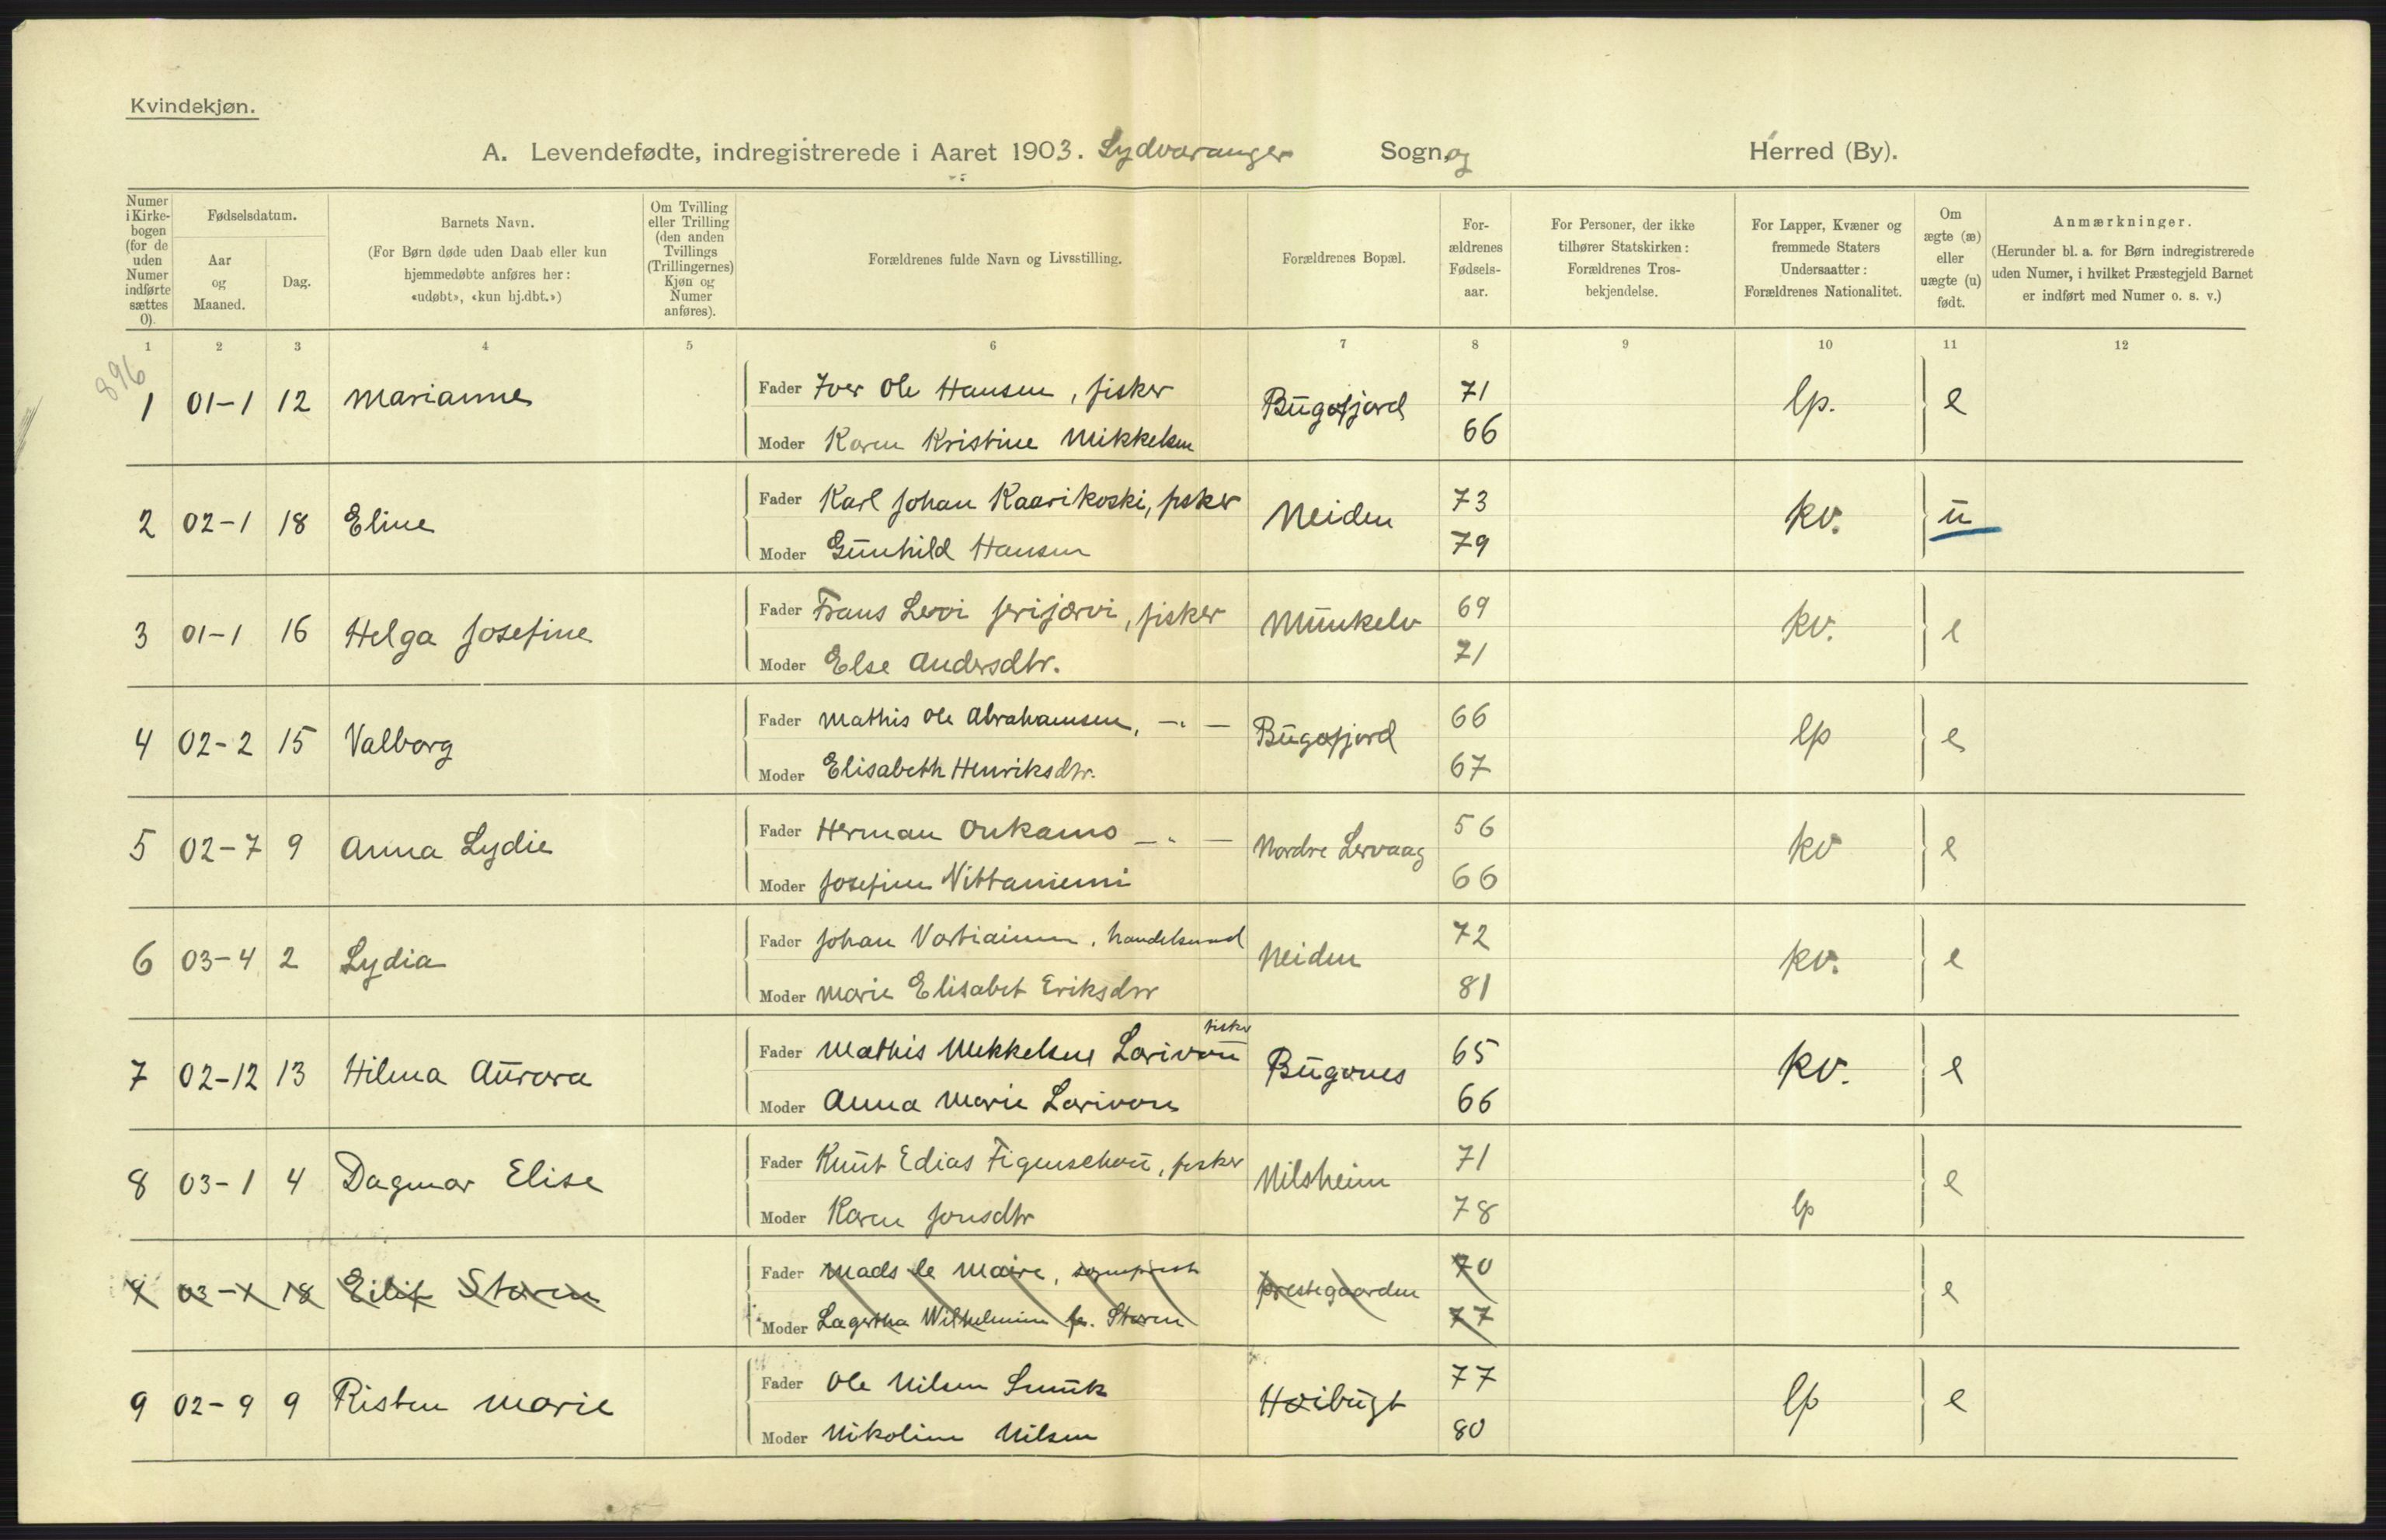 Kvindekjøn.
A. Levendefødte, indregistrerede i Aaret 1903. Sydvaranger Sogn og Herred (By).
Numer i Kirkebogen (for de uden Numer indførte sættes 0).
Fødselsdatum.
Aar og Maaned.
Dag.
Barnets Navn.
(For Børn døde uden Daab eller kun hjemmedøbte anføres her: «udøbt», «kun hj.dbt.»)
Om Tvilling eller Trilling (den anden Tvillings (Trillingernes) Kjøn og Numer anføres).
Forældrenes fulde Navn og Livsstilling.
Forældrenes Bopæl.
Forældrenes Fødselsaar.
For Personer, der ikke tilhører Statskirken: Forældrenes Trosbekjendelse.
For Lapper, Kvæner og fremmede Staters Undersaatter: Forældrenes Nationalitet.
Om ægte (æ) eller uægte (u) født.
Anmærkninger.
(Herunder bl. a. for Børn indregistrerede uden Numer, i hvilket Præstegjeld Barnet er indført med Numer o. s. v.)
1 2 3 4 5 6 7 8 9 10 11 12
896
1 01-1 12 Marianne Fader Iver Ole Hansen, fisker Bugøfjord 71 lp. e
Moder Karen Kristine Mikkelsen 66
2 02-1 18 Eline Fader Karl Johan Kaarikoski, fisker Neiden 73 kv. u
Moder Gunhild Hansen 79
3 01-1 16 Helga Josefine Fader Frans Levi Jerijærvi, fisker Munkelv 69 kv. e
Moder Else Andersdtr. 71
4 02-2 15 Valborg Fader Mathis Ole Abrahamsen, -"- Bugøfjord 66 lp e
Moder Elisabeth Henriksdtr. 67
5 02-7 9 Anna Lydie Fader Herman Onkamo -"- Nordre Lervaag 56 kv e
Moder Josefine Nittaniemi 66
6 03-4 2 Lydia Fader Johan Vartiainen, handelsmd Neiden 72 kv. e
Moder Marie Elisabet Eriksdtr 81
fisker
7 02-12 13 Hilma Aurora Fader Mathis Mikkelsen Larivou Bugønes 65 kv. e
Moder Anna Marie Larivou 66
8 03-1 4 Dagmar Elise Fader Knut Edias Figenschou, fisker Nilsheim 71 e
Moder Karen Jonsdtr 78 lp
9 03-1 18 Eilif Støren Fader Mads le Maire, sogneprest prestegaarden 70 e
Moder Lagertha Wilhelmine f. Støren 77
9 02-9 9 Risten Marie Fader Ole Nilsen Smuk Høibugt 77 lp e
Moder Nikoline Nilsen 80